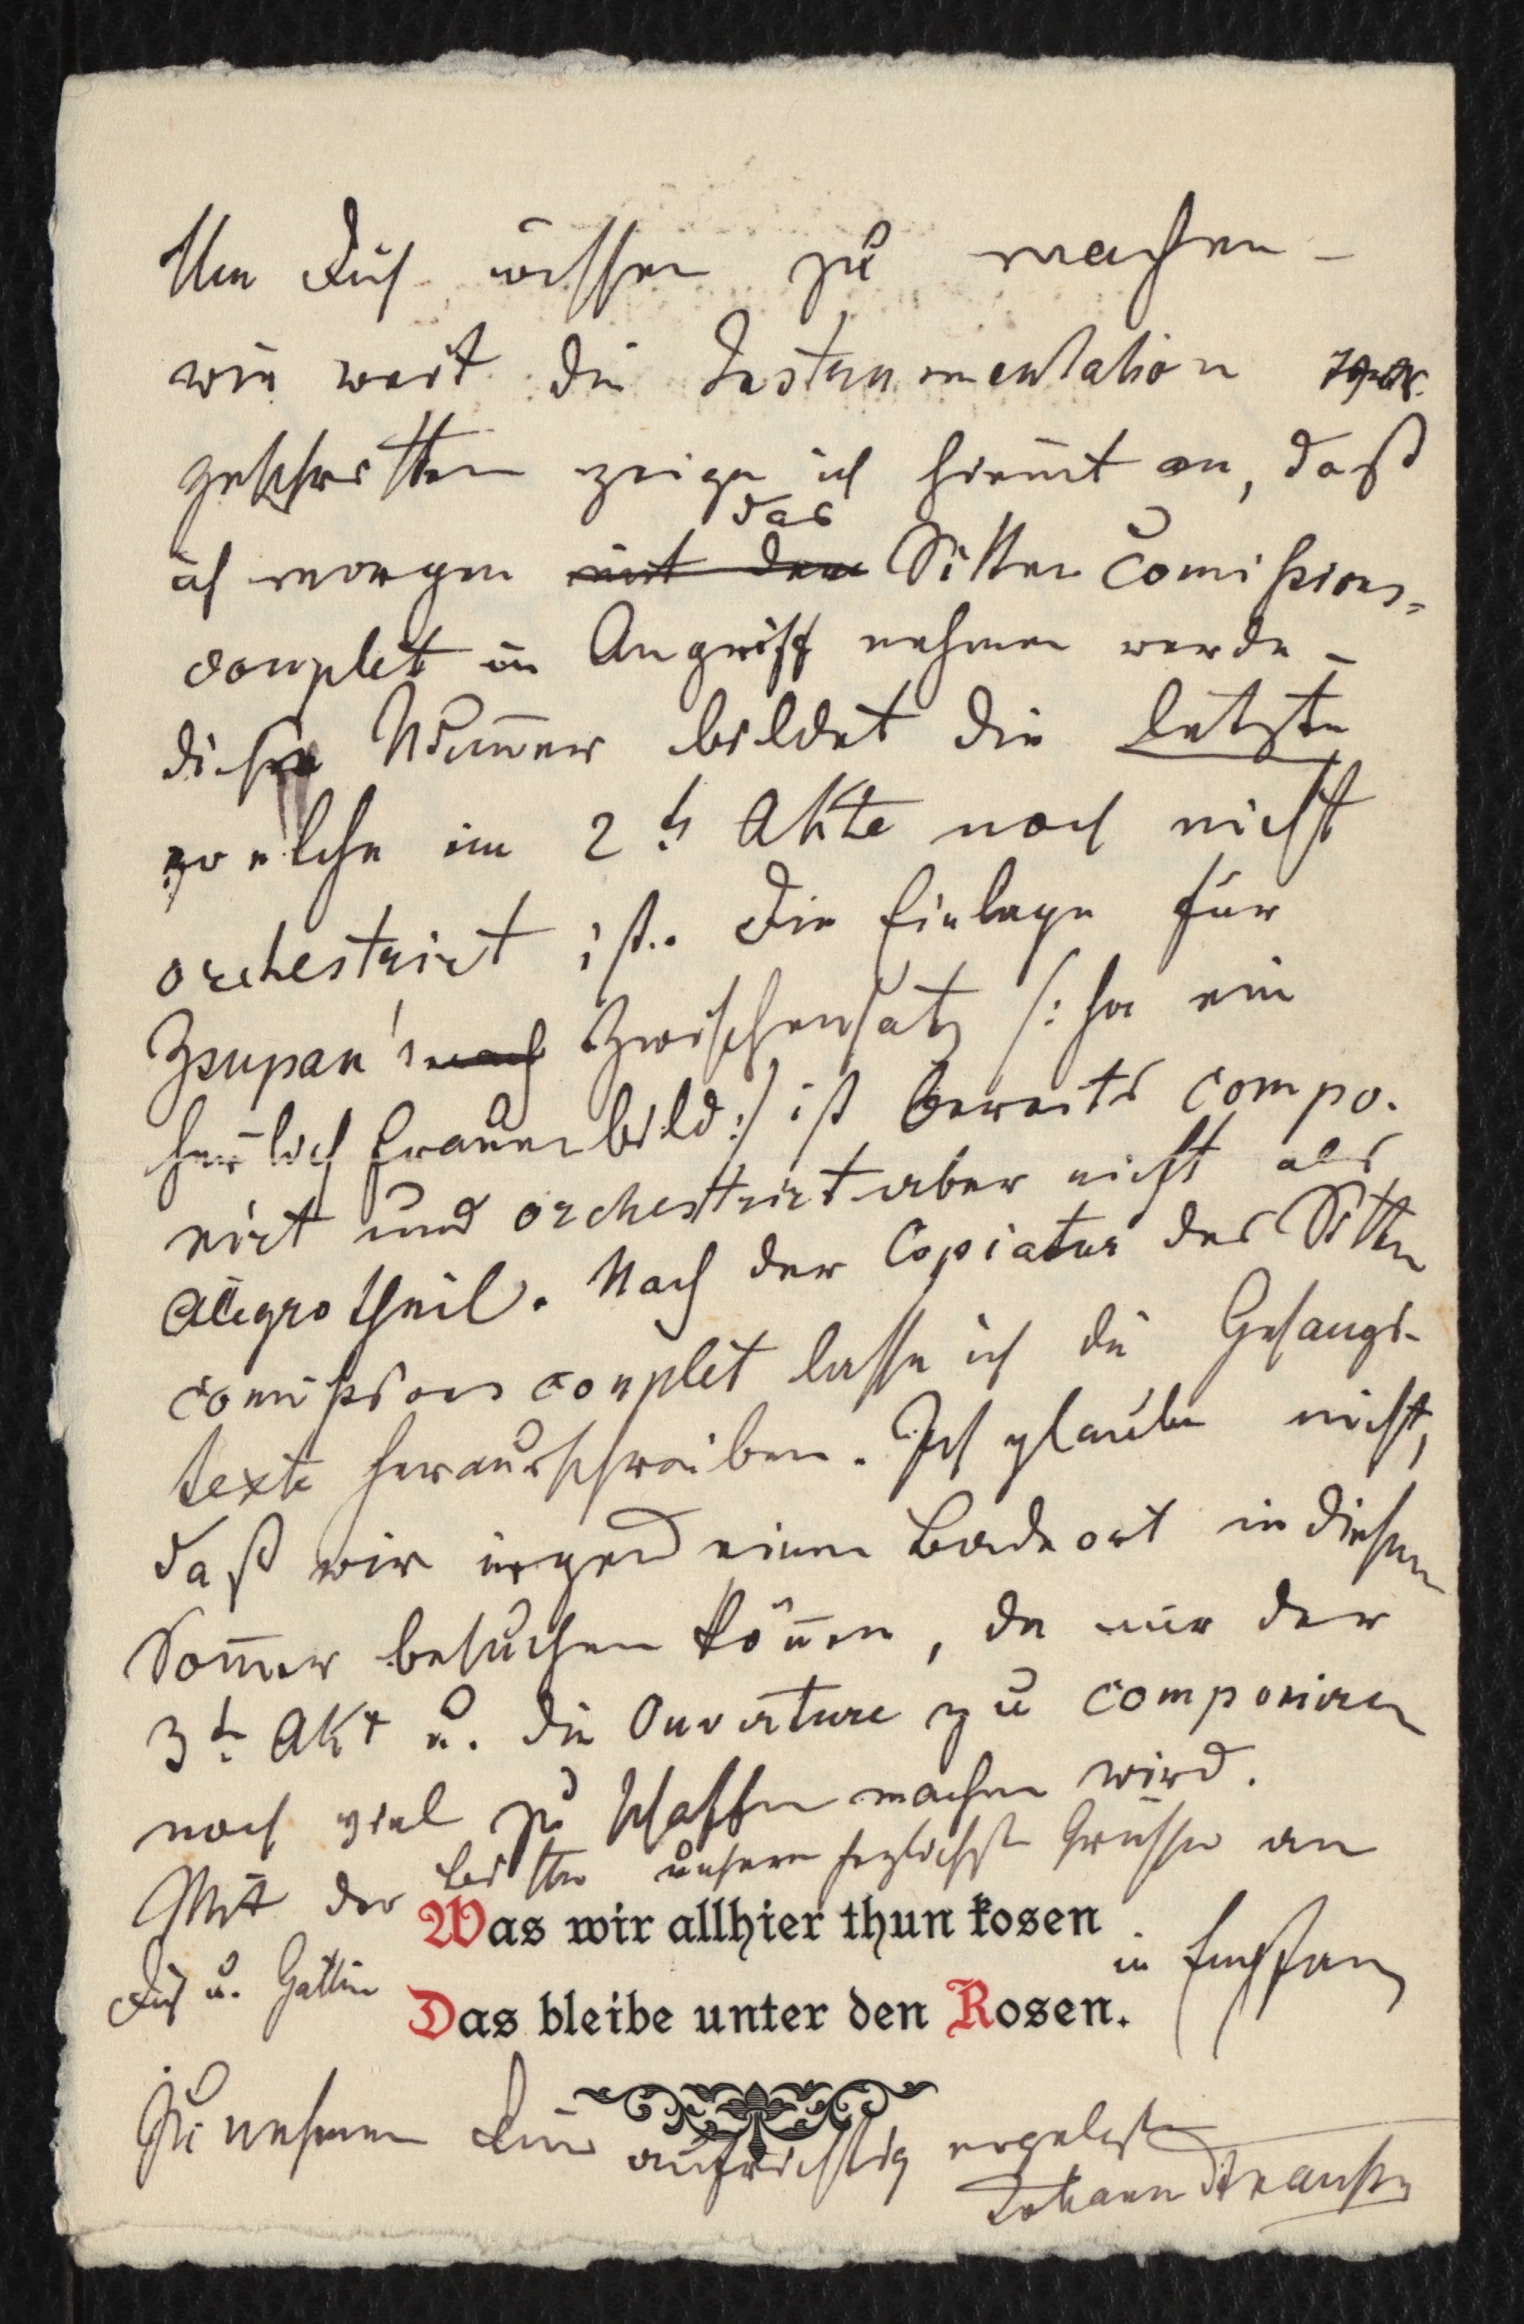 Um Dich wissen zu machen –
wie weit die Instrumentation
geschritten zeige ich hiemit an, daß
das
ich morgen mit dem Sitten Comißions=
couplet in Angriff nehmen werde –
diese Num̄er bildet die letzte
welche im 2t Akte noch nicht
orchestrirt ist. Die Einlage für
Zsupan's Zwischensatz /: ha ein
herrlich Frauenbild :/ ist bereits compo-
nirt und orchestrirt aber nicht als
Allegrotheil. Nach der Copiatur des Sitten
comißions couplet lasse ich die Gesangs-
texte herausschreiben. Ich glaube nicht,
daß wir irgend einen Badeort in diesem
Som̄er besuchen kön̄en, da mir der
3t Akt u. die Ouverture zu componiren
noch viel zu schaffen machen wird.
Mit der Bitte unsere herzlichste Grüsse an
Was wir allhier thun kosen
Dich u. Gattin in Empfang
Das bleibe unter den Rosen.
zu nehmen Dein aufrichtig ergebenster
Johann Strauß